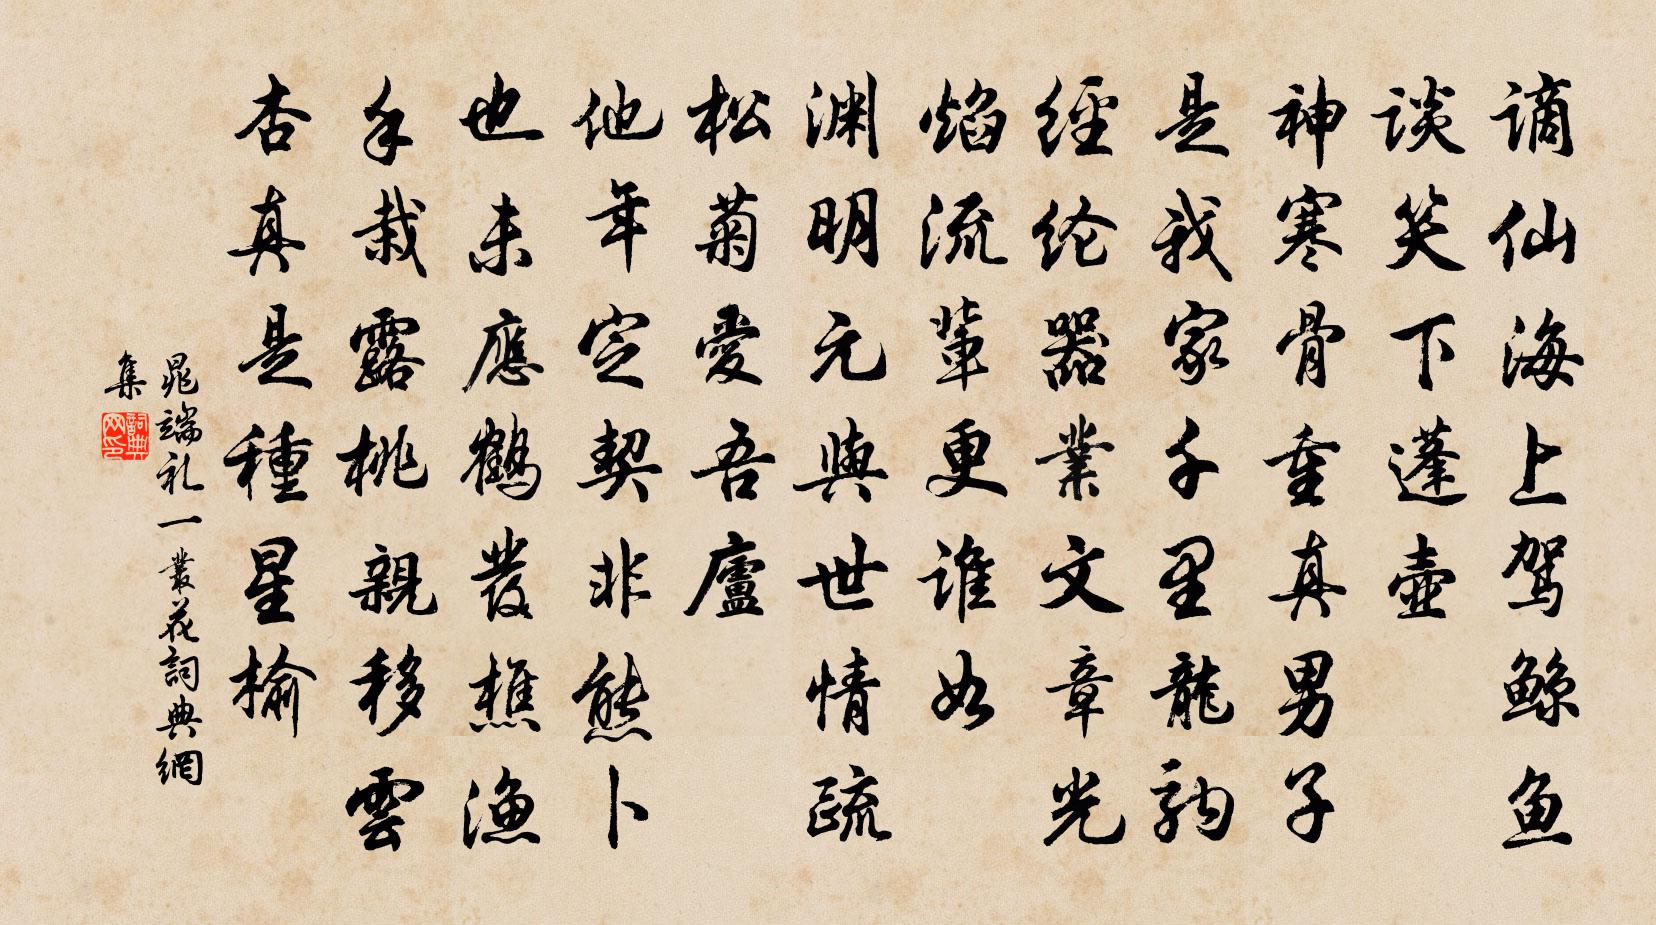 谪仙海上驾鲸鱼
谈笑下蓬壶
神寒骨重真男子
是我家千里龍驹
經纶器業文章光
焰流輩更谁如
渊明元與世情疏
松菊愛吾廬
他年定契非熊卜
也未應鶴發樵渔
手栽露桃親移雲
杏真是種星榆
晁端礼一叢花詞典網
集
詞典
网印